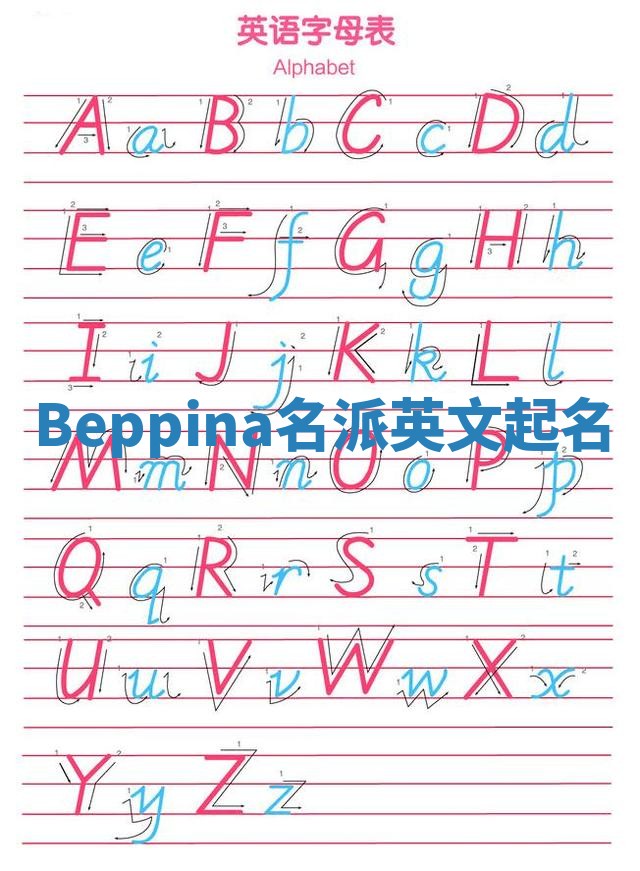 英语字母表
Alphabet
A a B b C c D d
E e F f G g H h
I i J j K k L l
Beppina名派英文起名
M m N n O o P p
Q q R r S s T t
U u V v W w X x
Y y Z z